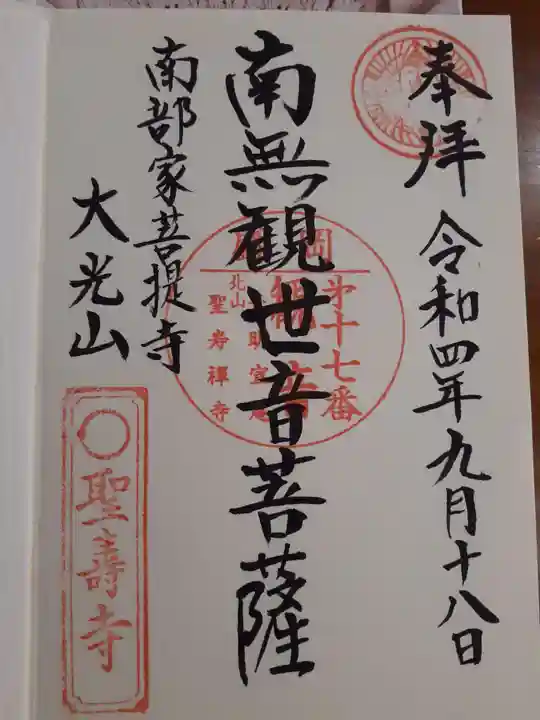 奉拝
令和四年九月十八日
南無観世音菩薩
南部家菩提寺
大光山
聖壽寺
岡
第十七番
北山
聖寿禅寺